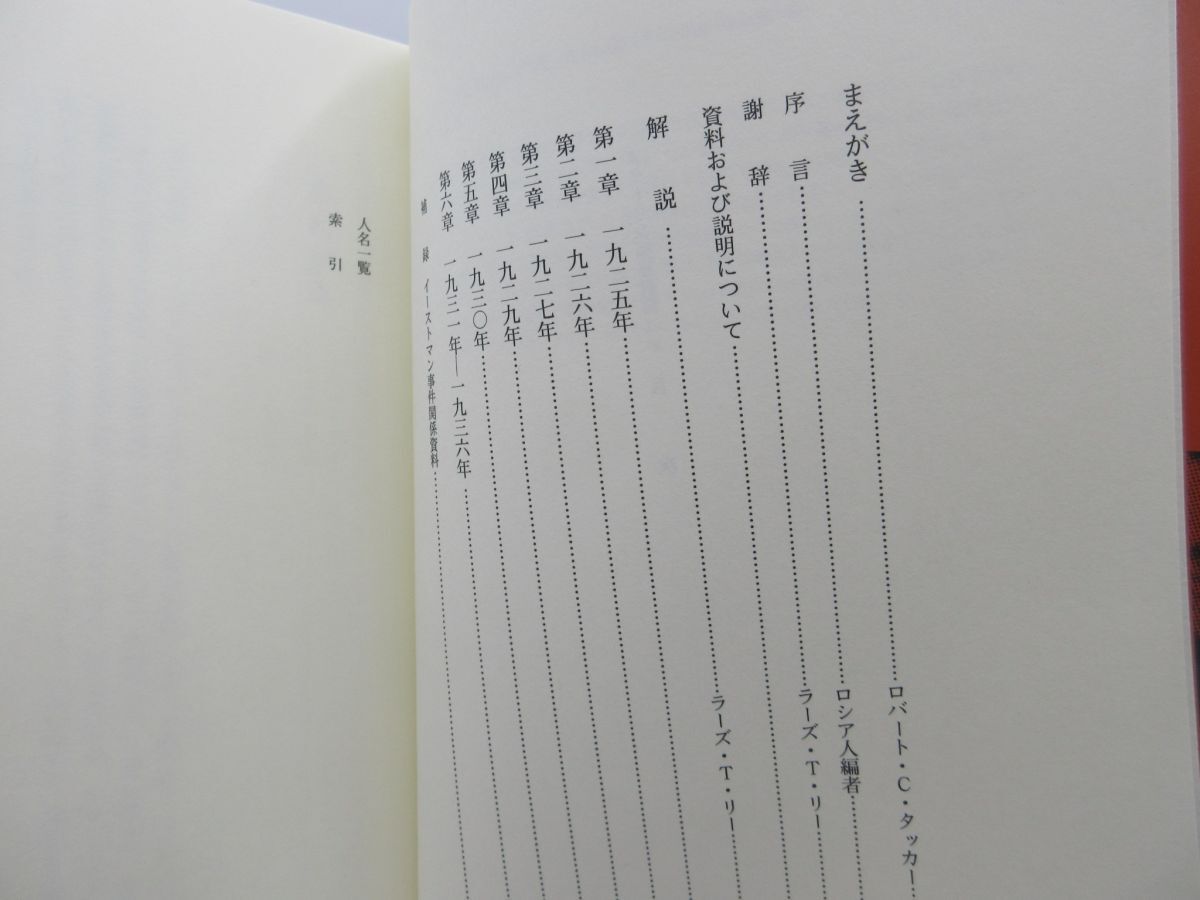 まえがき……ロバート・C・タッカー……
序言……ロシア人編者……
謝辞……ラーズ・T・リー……
資料および説明について……
解説……ラーズ・T・リー……
第一章 一九二五年……
第二章 一九二六年……
第三章 一九二七年……
第四章 一九二九年……
第五章 一九三〇年……
第六章 一九三一年―一九三六年……
補録 イーストマン事件関係資料……
人名一覧
索引